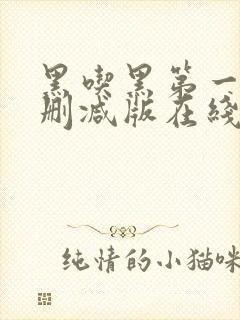 黑喫黑第一
删减版在綫
纯情的小猫咪